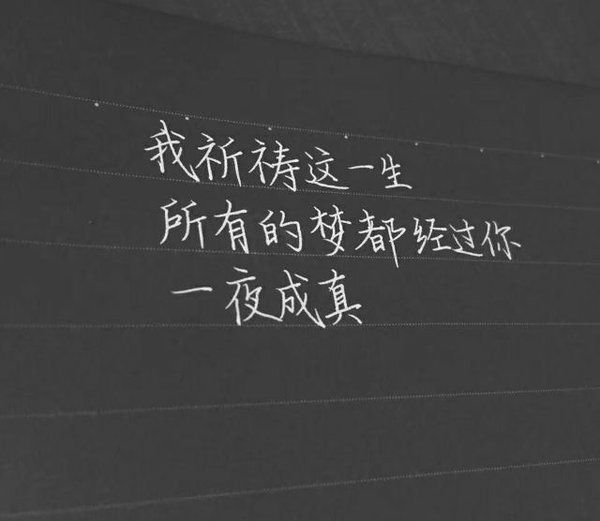 我祈祷这一生
所有的梦都经过你
一夜成真